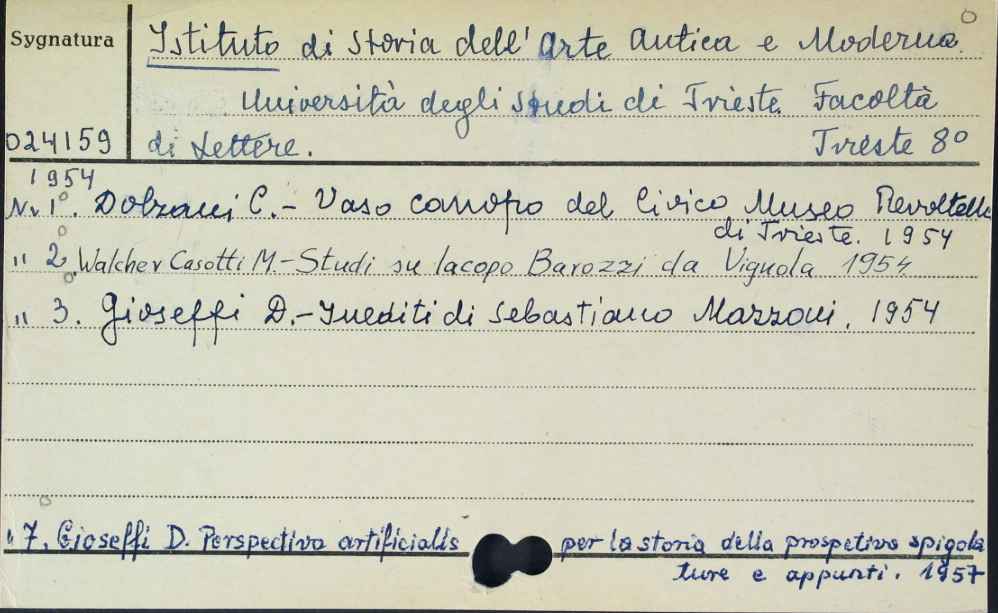 Sygnatura
Istituto di Storia dell' Arte Antica e Moderna.
Università degli Studi di Trieste. Facoltà
024159
di Lettere. Trieste 8°
1954
Nr 1°. Dolzani C. - Vaso canopo del Civico Museo Revoltella
di Trieste. 1954
" 2. Walcher Casotti M. - Studi su Iacopo Barozzi da Vignola 1954
" 3. Gioseffi D. - Inediti di Sebastiano Mazzoni. 1954
" 7. Gioseffi D. Perspectiva artificialis per la storia della prospetiva spigola
ture e appunti. 1957